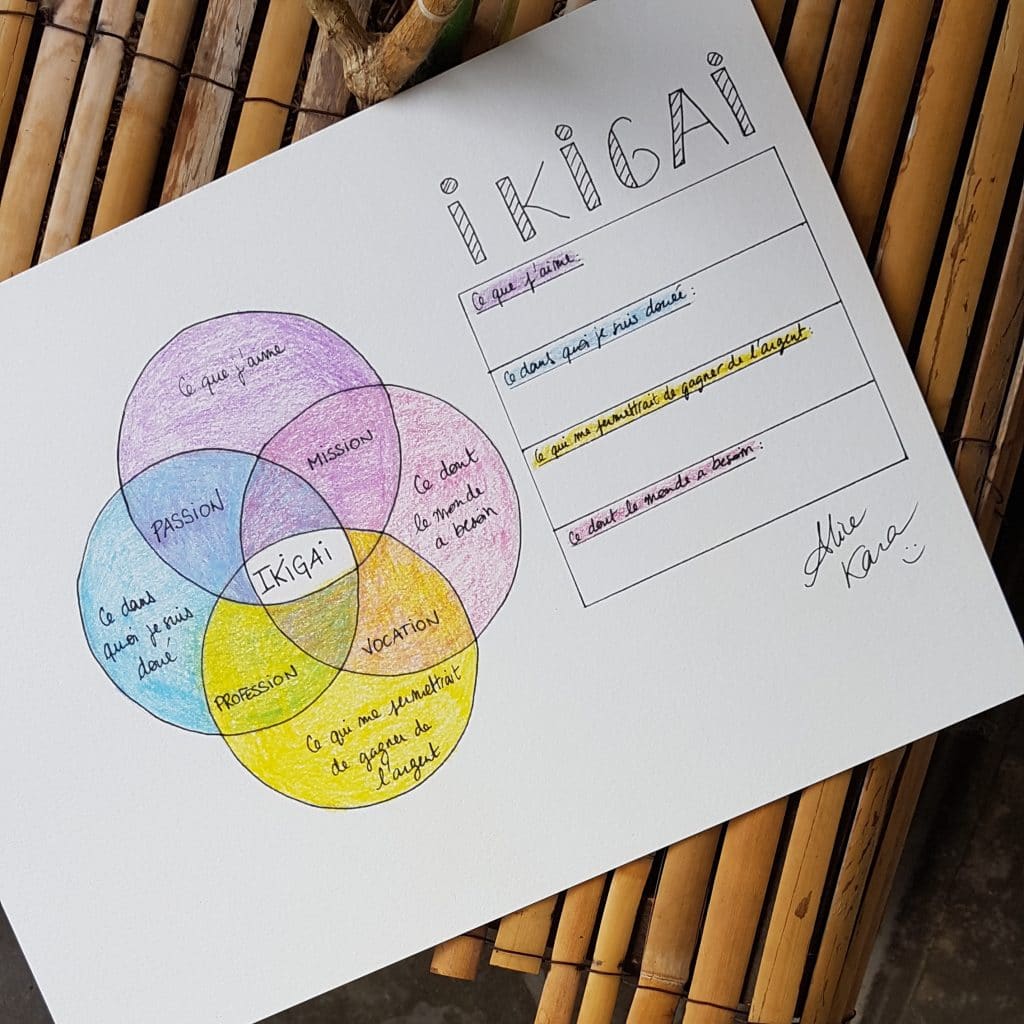 iKiGAi
Ce que j'aime:
Ce dans quoi je suis douée:
Ce qui me permettrait de gagner de l'argent:
Ce dont le monde a besoin:
Alice
Kara
Ce que j'aime
MISSION
Ce dont
le monde
a besoin
PASSION
IKiGAi
Ce dans
quoi je suis
doué
VOCATION
PROFESSION
Ce qui me permettrait
de gagner de
l'argent